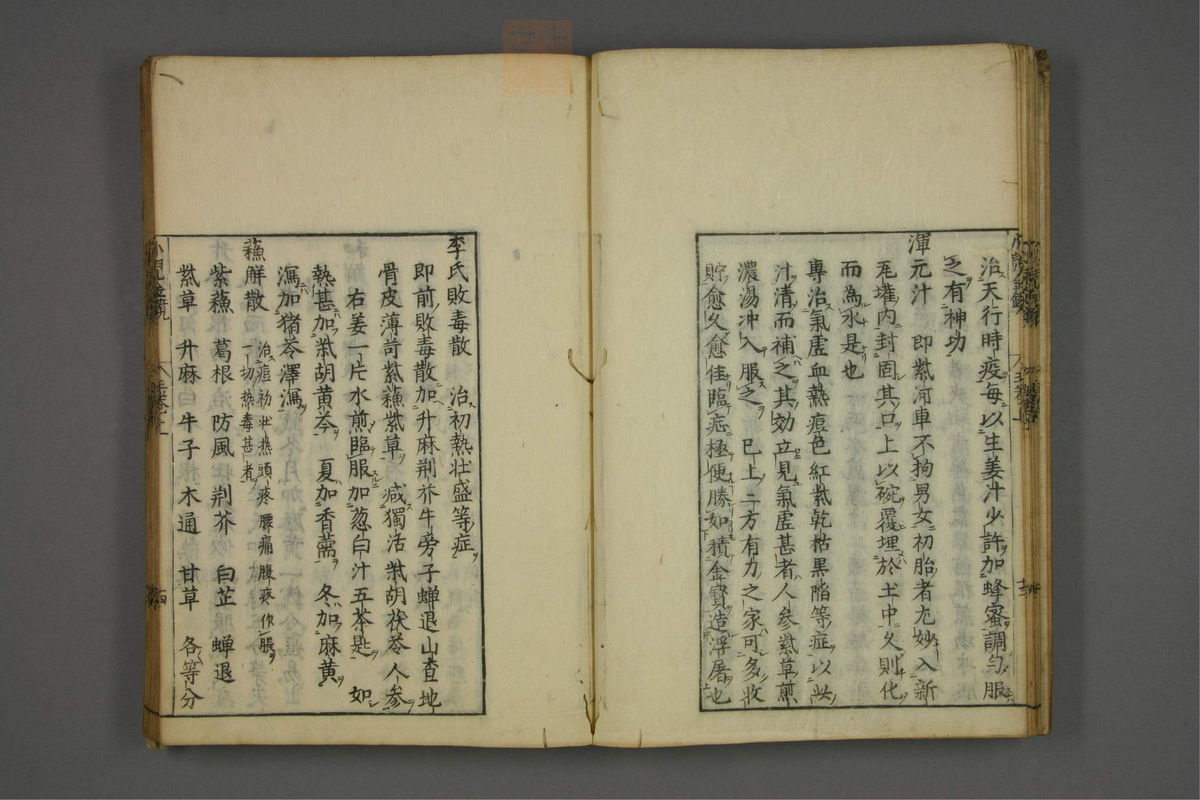 治天行時疫每以生姜汁少許加蜂蜜調勻服
之有神功
渾元汁 即紫河車不拘男女初胎者尤妙入新
瓦罐内封固其口上以碗覆埋於土中久則化
而為水是也
專治氣虛血熱痘色紅紫乾枯黒陷等症以此
汁清而補之其効立見氣虛甚者人参紫草煎
濃湯冲入服之 已上二方有力之家可多收
貯愈久愈佳臨症極便勝如積金寶造浮屠也
李氏敗毒散 治初熱壮盛等症
即前敗毒散加升麻荆芥牛旁子蝉退山査地
骨皮薄苛紫蘓紫草 减獨活柴胡茯苓人参
右姜一片水煎臨服加葱白汁五茶匙 如
熱甚加柴胡黄芩 夏加香薷 冬加麻黄
瀉加猪苓澤瀉
蘓解散 治痘初壮热頭疼腰痛腹疼作脹
一切热毒甚者
紫蘓 葛根 防風 荆芥 白芷 蝉退
紫草 升麻 牛子 木通 甘草 各等分